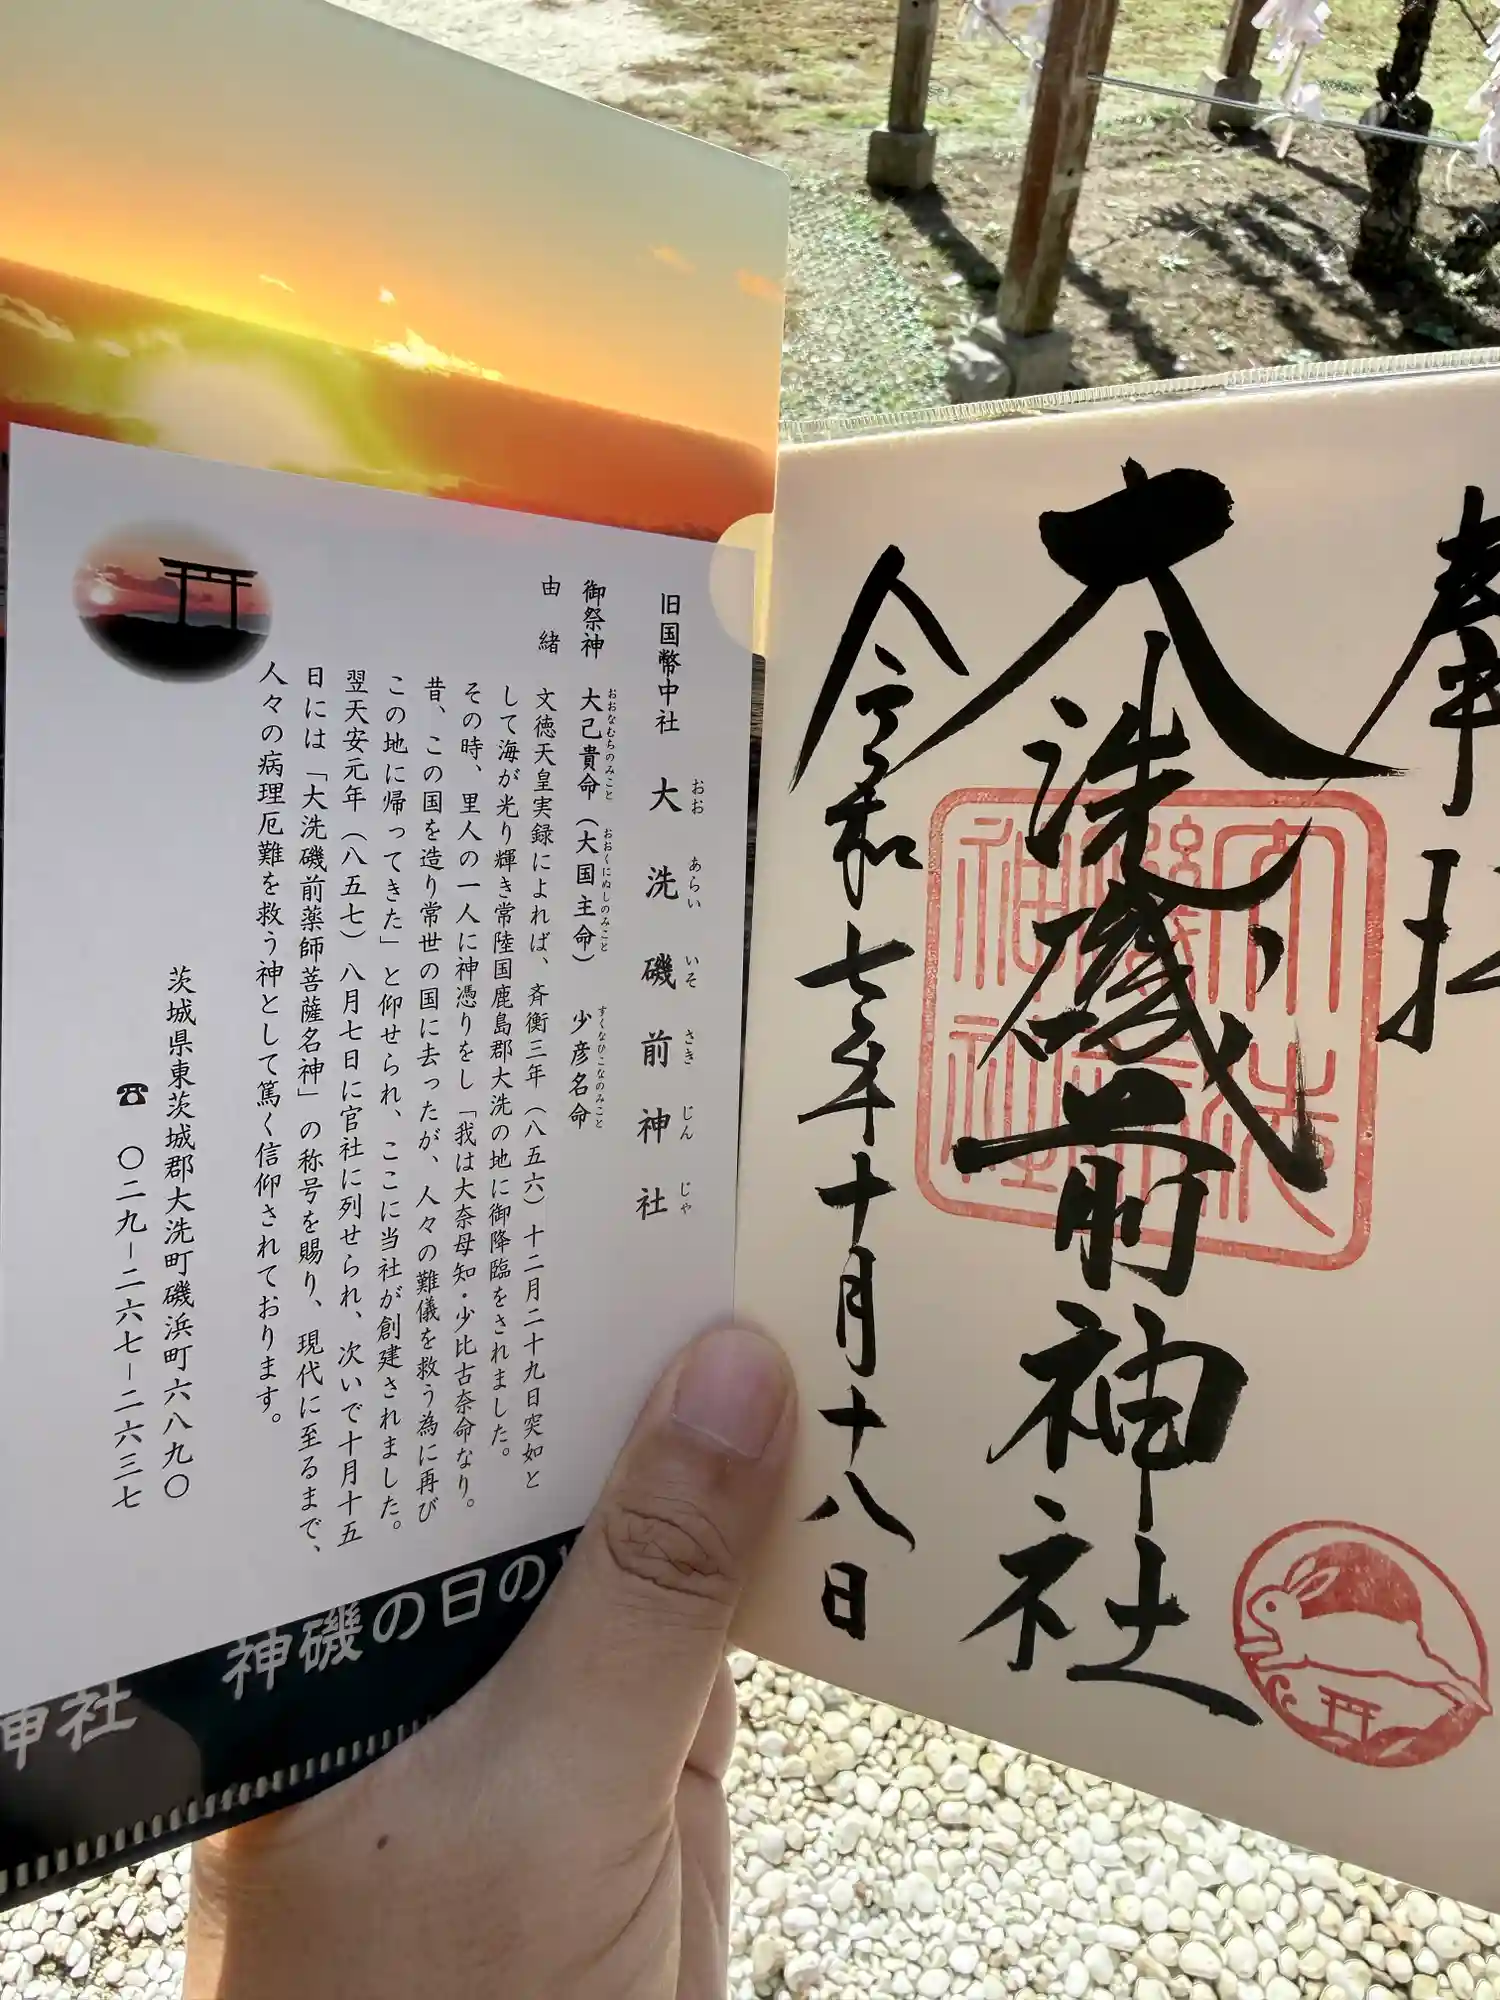 奉拝
大洗磯前神社
令和七年十月十八日
大洗磯前神社
旧国幣中社 大洗磯前神社
おお あらい いそ さき じん じゃ
御祭神 大己貴命(大国主命) 少彦名命
おおなむちのみこと おおくにぬしのみこと すくなひこなのみこと
由緒 文徳天皇実録によれば、斉衡三年(八五六)十二月二十九日突如と
して海が光り輝き常陸国鹿島郡大洗の地に御降臨をされました。
その時、里人の一人に神憑りをし「我は大奈母知・少比古奈命なり。
昔、この国を造り常世の国に去ったが、人々の難儀を救う為に再び
この地に帰ってきた」と仰せられ、ここに当社が創建されました。
翌天安元年(八五七)八月七日に官社に列せられ、次いで十月十五
日には「大洗磯前薬師菩薩名神」の称号を賜り、現代に至るまで、
人々の病理厄難を救う神として篤く信仰されております。
茨城県東茨城郡大洗町磯浜町六八九〇
☎ 〇二九-二六七-二六三七
神社 神磯の日の